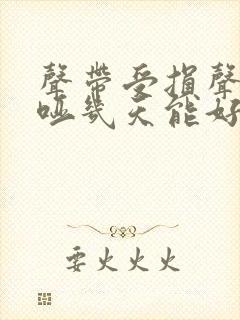 聲帶受損聲
啞幾天能好
要火火火